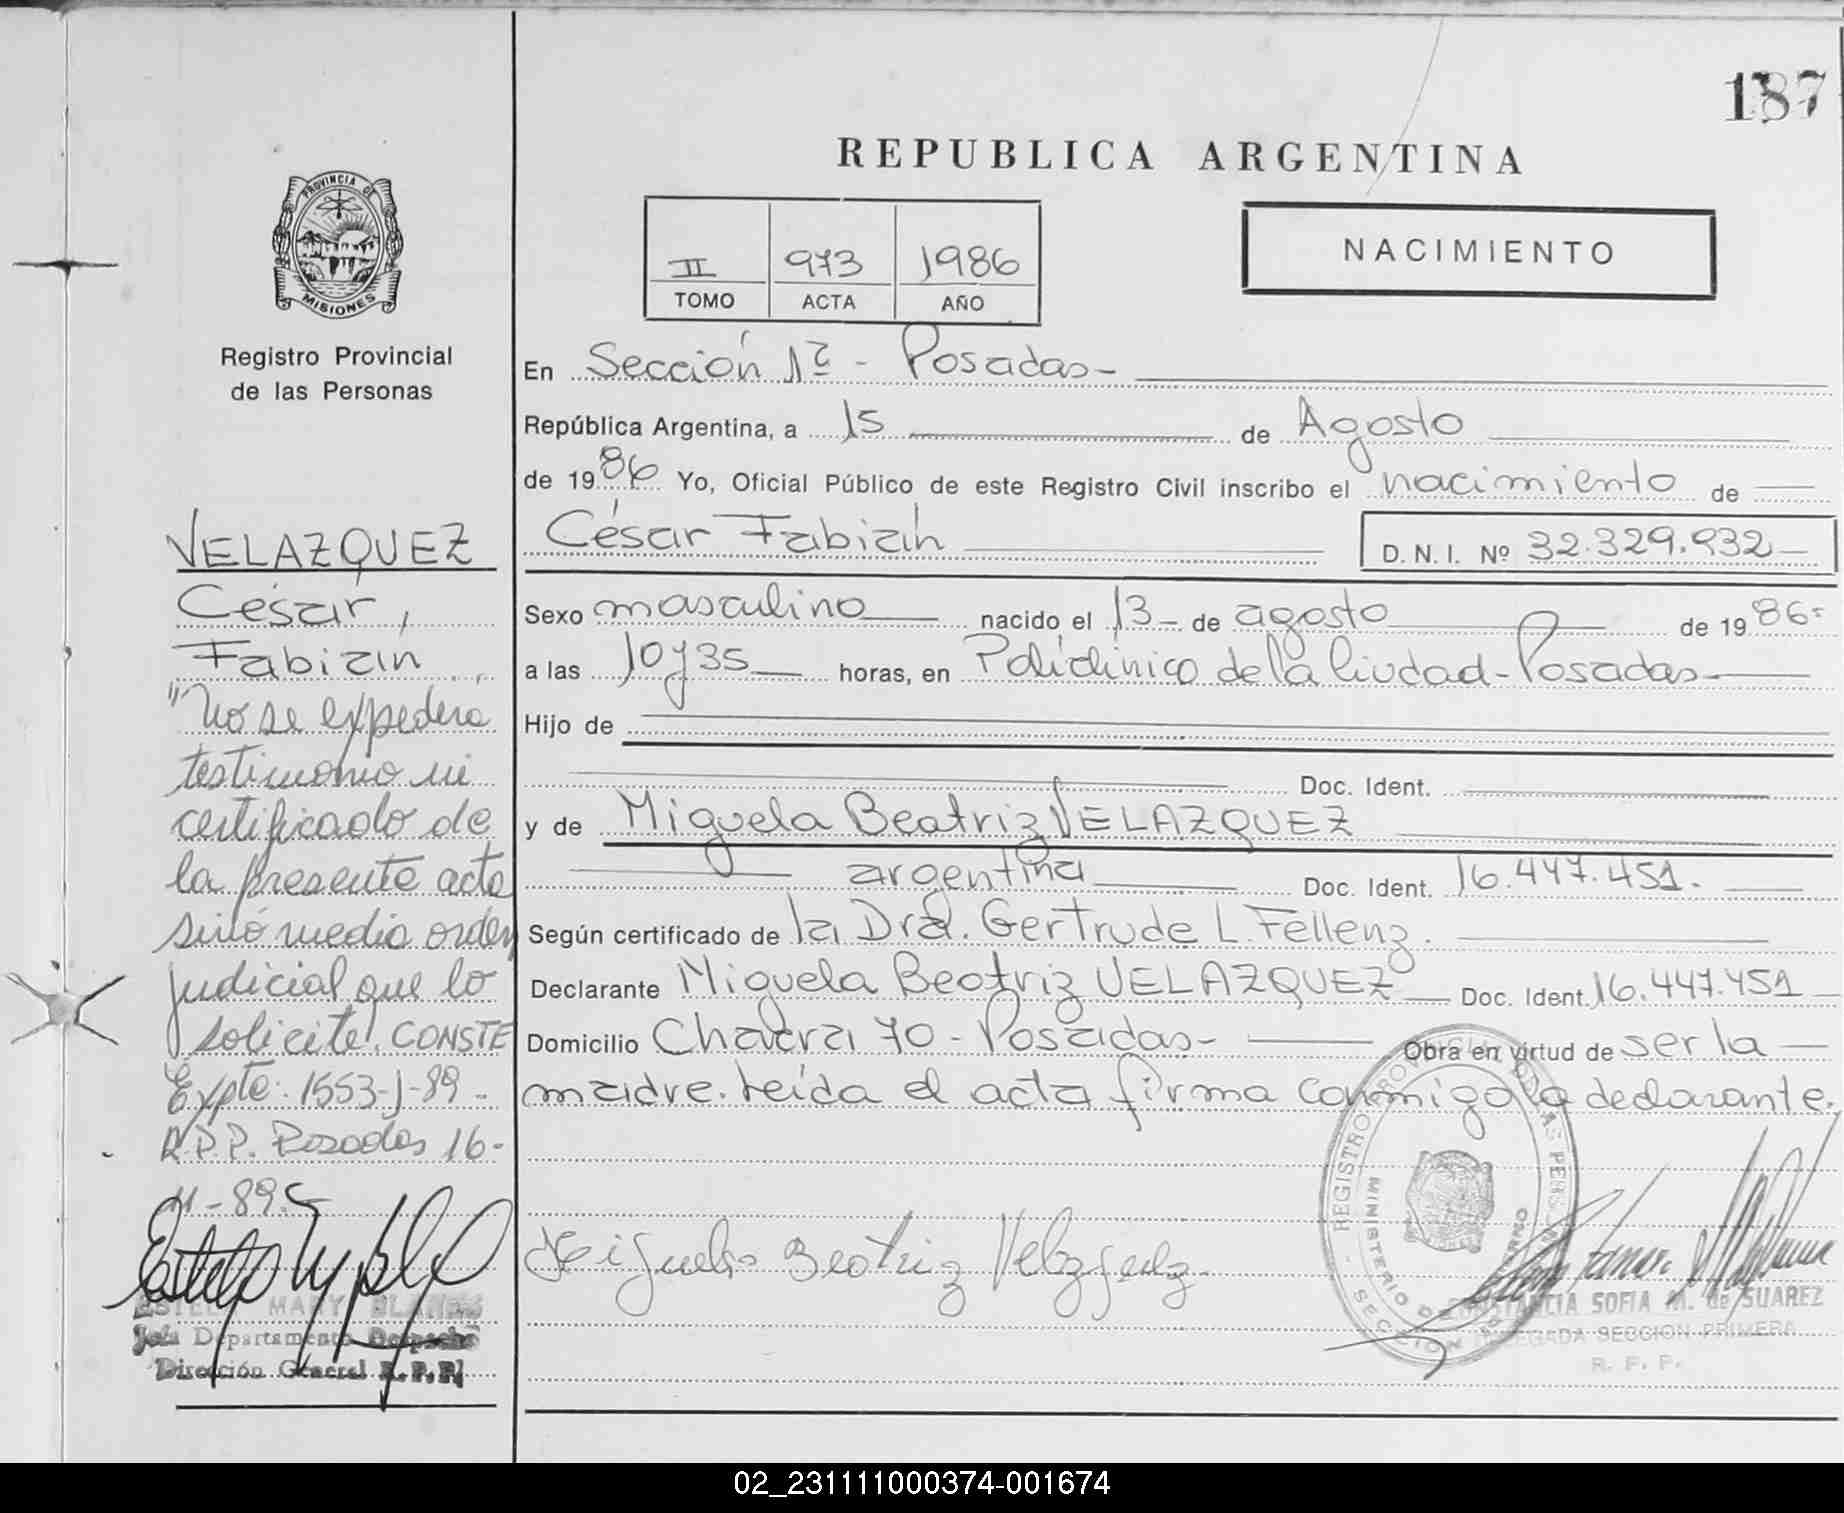 187
REPUBLICA ARGENTINA
PROVINCIA DE
MISIONES
II 973 1986
TOMO ACTA AÑO
NACIMIENTO
Registro Provincial
de las Personas
En Sección 1ª - Posadas -
República Argentina, a 15 de Agosto
de 1986 Yo, Oficial Público de este Registro Civil inscribo el nacimiento de
César Fabián D. N. I. Nº 32.329.932
Sexo masculino nacido el 13 - de agosto de 1986 -
a las 10 y 35 horas, en Policlínico de la Ciudad - Posadas
Hijo de
Doc. Ident.
y de Miguela Beatriz VELAZQUEZ
argentina Doc. Ident. 16.447.451.
Según certificado de la Dra. Gertrude L. Fellenz.
Declarante Miguela Beatriz VELAZQUEZ Doc. Ident. 16.447.451
Domicilio Chacra 70 - Posadas - Obra en virtud de ser la
madre. Leída el acta firma conmigo la declarante.
Miguela Beatriz Velazquez
CONSTANCIA SOFIA M. de SUAREZ
DELEGADA SECCION PRIMERA
R. P. P.
VELAZQUEZ
César,
Fabián
"No se expedera
testimonio ni
certificado de
la presente acta
sinó media orden
judicial que lo
solicite". CONSTE
Expte: 1553-J-89 -
R.P.P. Posadas 16-
11-89.
ESTELA MARY BLANCO
Jefa Departamento Despacho
Dirección General R.P.P.
02_231111000374-001674